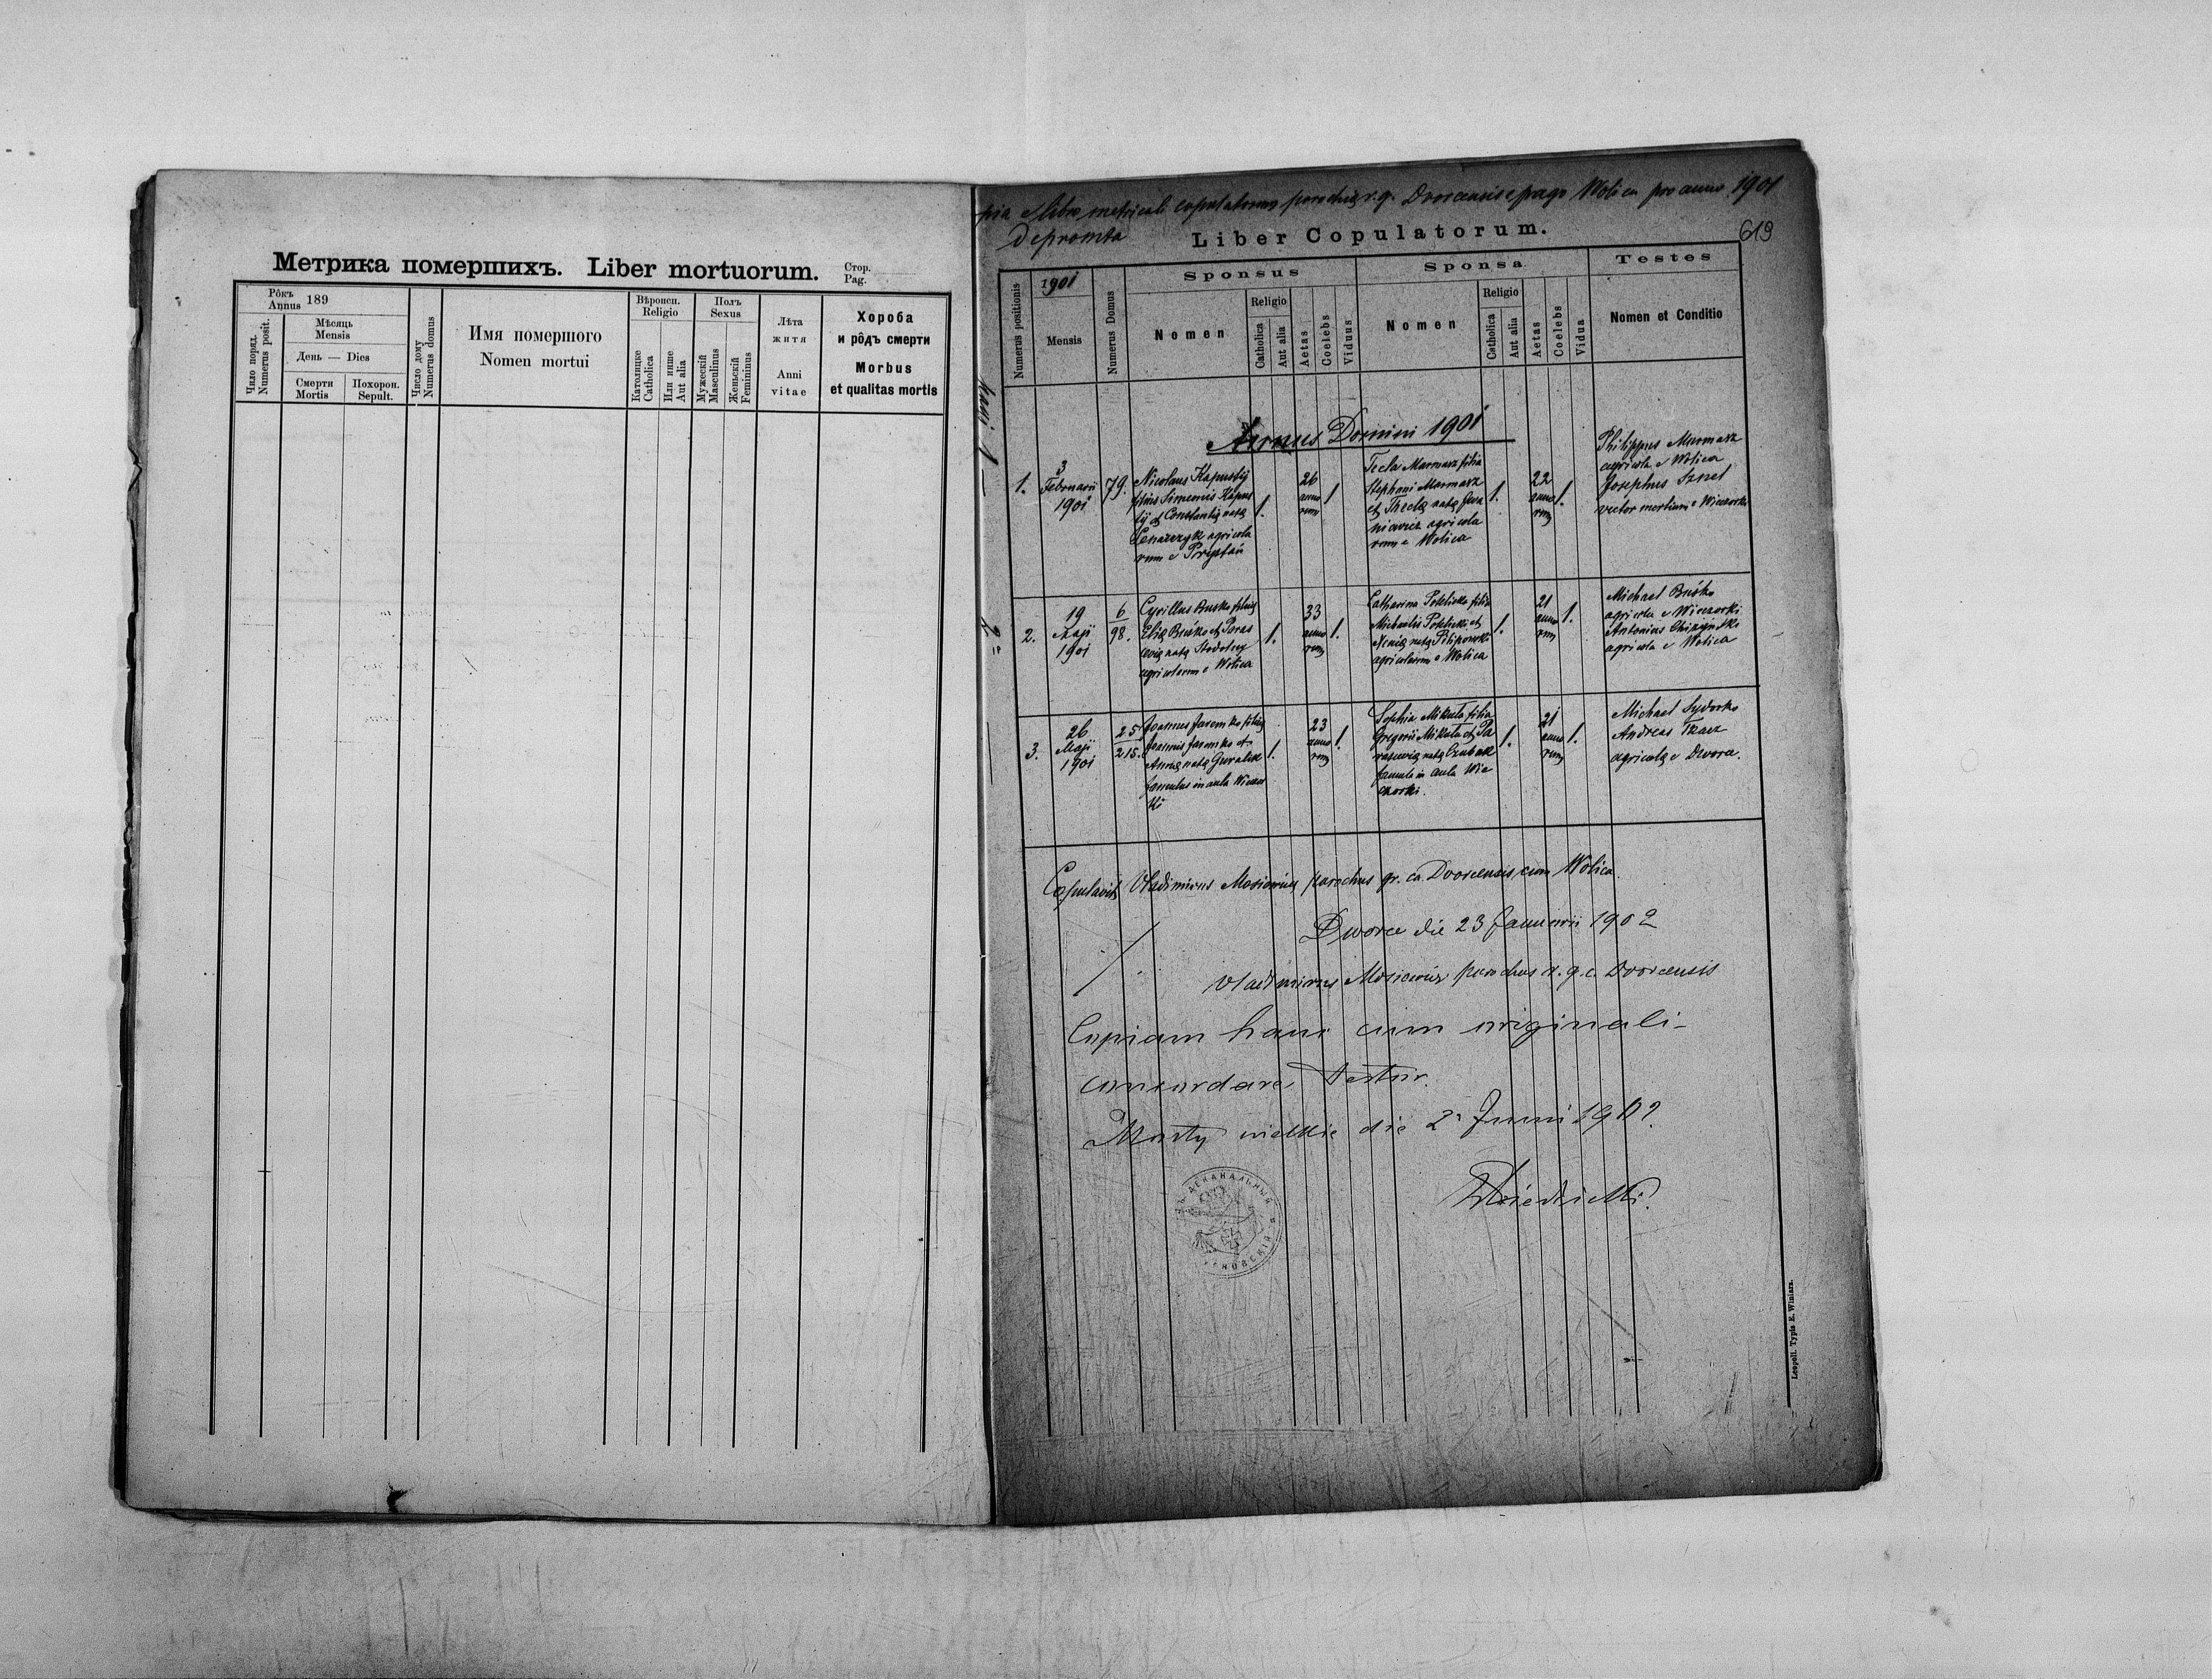 Метрика помершихъ. Liber mortuorum.
Стор.
Pag.
Рôкъ
Annus 189
Число поряд.
Numerus posit.
Мѣсяць
Mensis
День — Dies
Смерти
Mortis
Похорон.
Sepult.
Число дому
Numerus domus
Имя помершого
Nomen mortui
Вѣроисп.
Religio
Католицке
Catholica
Или инше
Aut alia
Полъ
Sexus
Мужескій
Masculinus
Женьскій
Femininus
Лѣта
житя
Anni
vitae
Хороба
и рôдъ смерти
Morbus
et qualitas mortis
pia e libro metricali copulatorum parochię r. g. Dvorcensis e pago Wolica pro anno 1901
depromta
Liber Copulatorum.
619
Numerus positionis
1901
Mensis
Numerus Domus
Sponsus
Nomen
Religio
Catholica
Aut alia
Aetas
Coelebs
Viduus
Sponsa
Nomen
Religio
Catholica
Aut alia
Aetas
Coelebs
Vidua
Testes
Nomen et Conditio
Annus Domini 1901
1.
3
Februarii
1901
79.
Nicolaus Kapustij
filius Simeonis Kapus
tij et Constantię natę
agricola
rum e Przystań
1.
26
anno
rum
1
Tecla Marmasz filia
Stephani Marmasz
et Theclę natę
agricola
rum e Wolica
1.
22
anno
rum
1.
Philippus Marmasz
agricola e Wolica
Josephus
2.
19
Maji
1901
6
98.
Cyrillus Busko filius
Elię Buśko et Paras
cevię natę
agricolarum e Wolica
1.
33
anno
rum
1.
Catharina filia
Michaelis et
Xenię natę
agricolarum e Wolica
1.
21
anno
rum
1.
Michael Buśko
agricola e Wieczorki
Antonius
agricola e Wolica
3.
26
Maji
1901
25
215.
Joannes Jaremko filius
Joannis Jaremko et
Annę natę Guralsk
famulus in aula Wieczor
ki
1.
23
anno
rum
1.
Sophia Mikuta filia
Gregorii Mikuta et Pa
rascevię natę
famula in aula Wie
czorki.
1.
21
anno
rum
1.
Michael Sydorko
Andreas Tkacz
agricolę e Dworce.
Copulavit Vladimirus Mosiewicz parochus gr. ca. Dvorcensis cum Wolica.
Dworce die 23 Januarii 1902
Vladimirus Mosiewicz parochus r. g. c. Dvorcensis
Copiam hanc cum originali
concordare testor.
Mosty wielkie die 2 Junii 1902.
ДЕКАНАЛЬНЫЙ
Leopoli. Typis E. Winiarz.